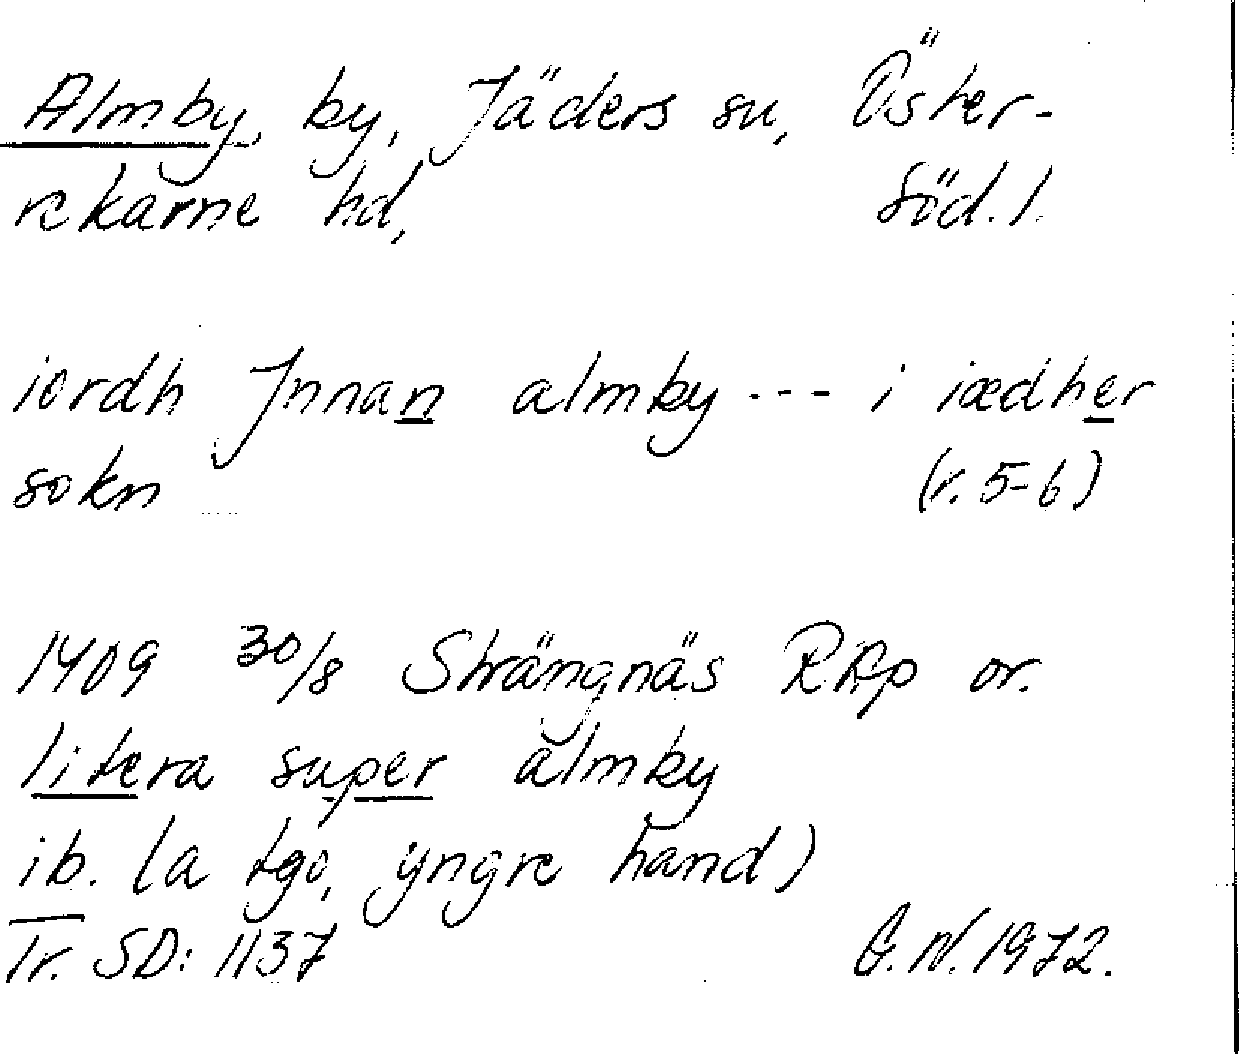 Almby, by, Jäders sn, Öster-
rekarne hd, Söd. l.
iordh Jnnan almby --- i iædher
sokn (r. 5-6)
1409 30/8 Strängnäs RAp or.
litera super almby
ib. (a tgo, yngre hand)
Tr. SD: 1137 G.N. 1972.